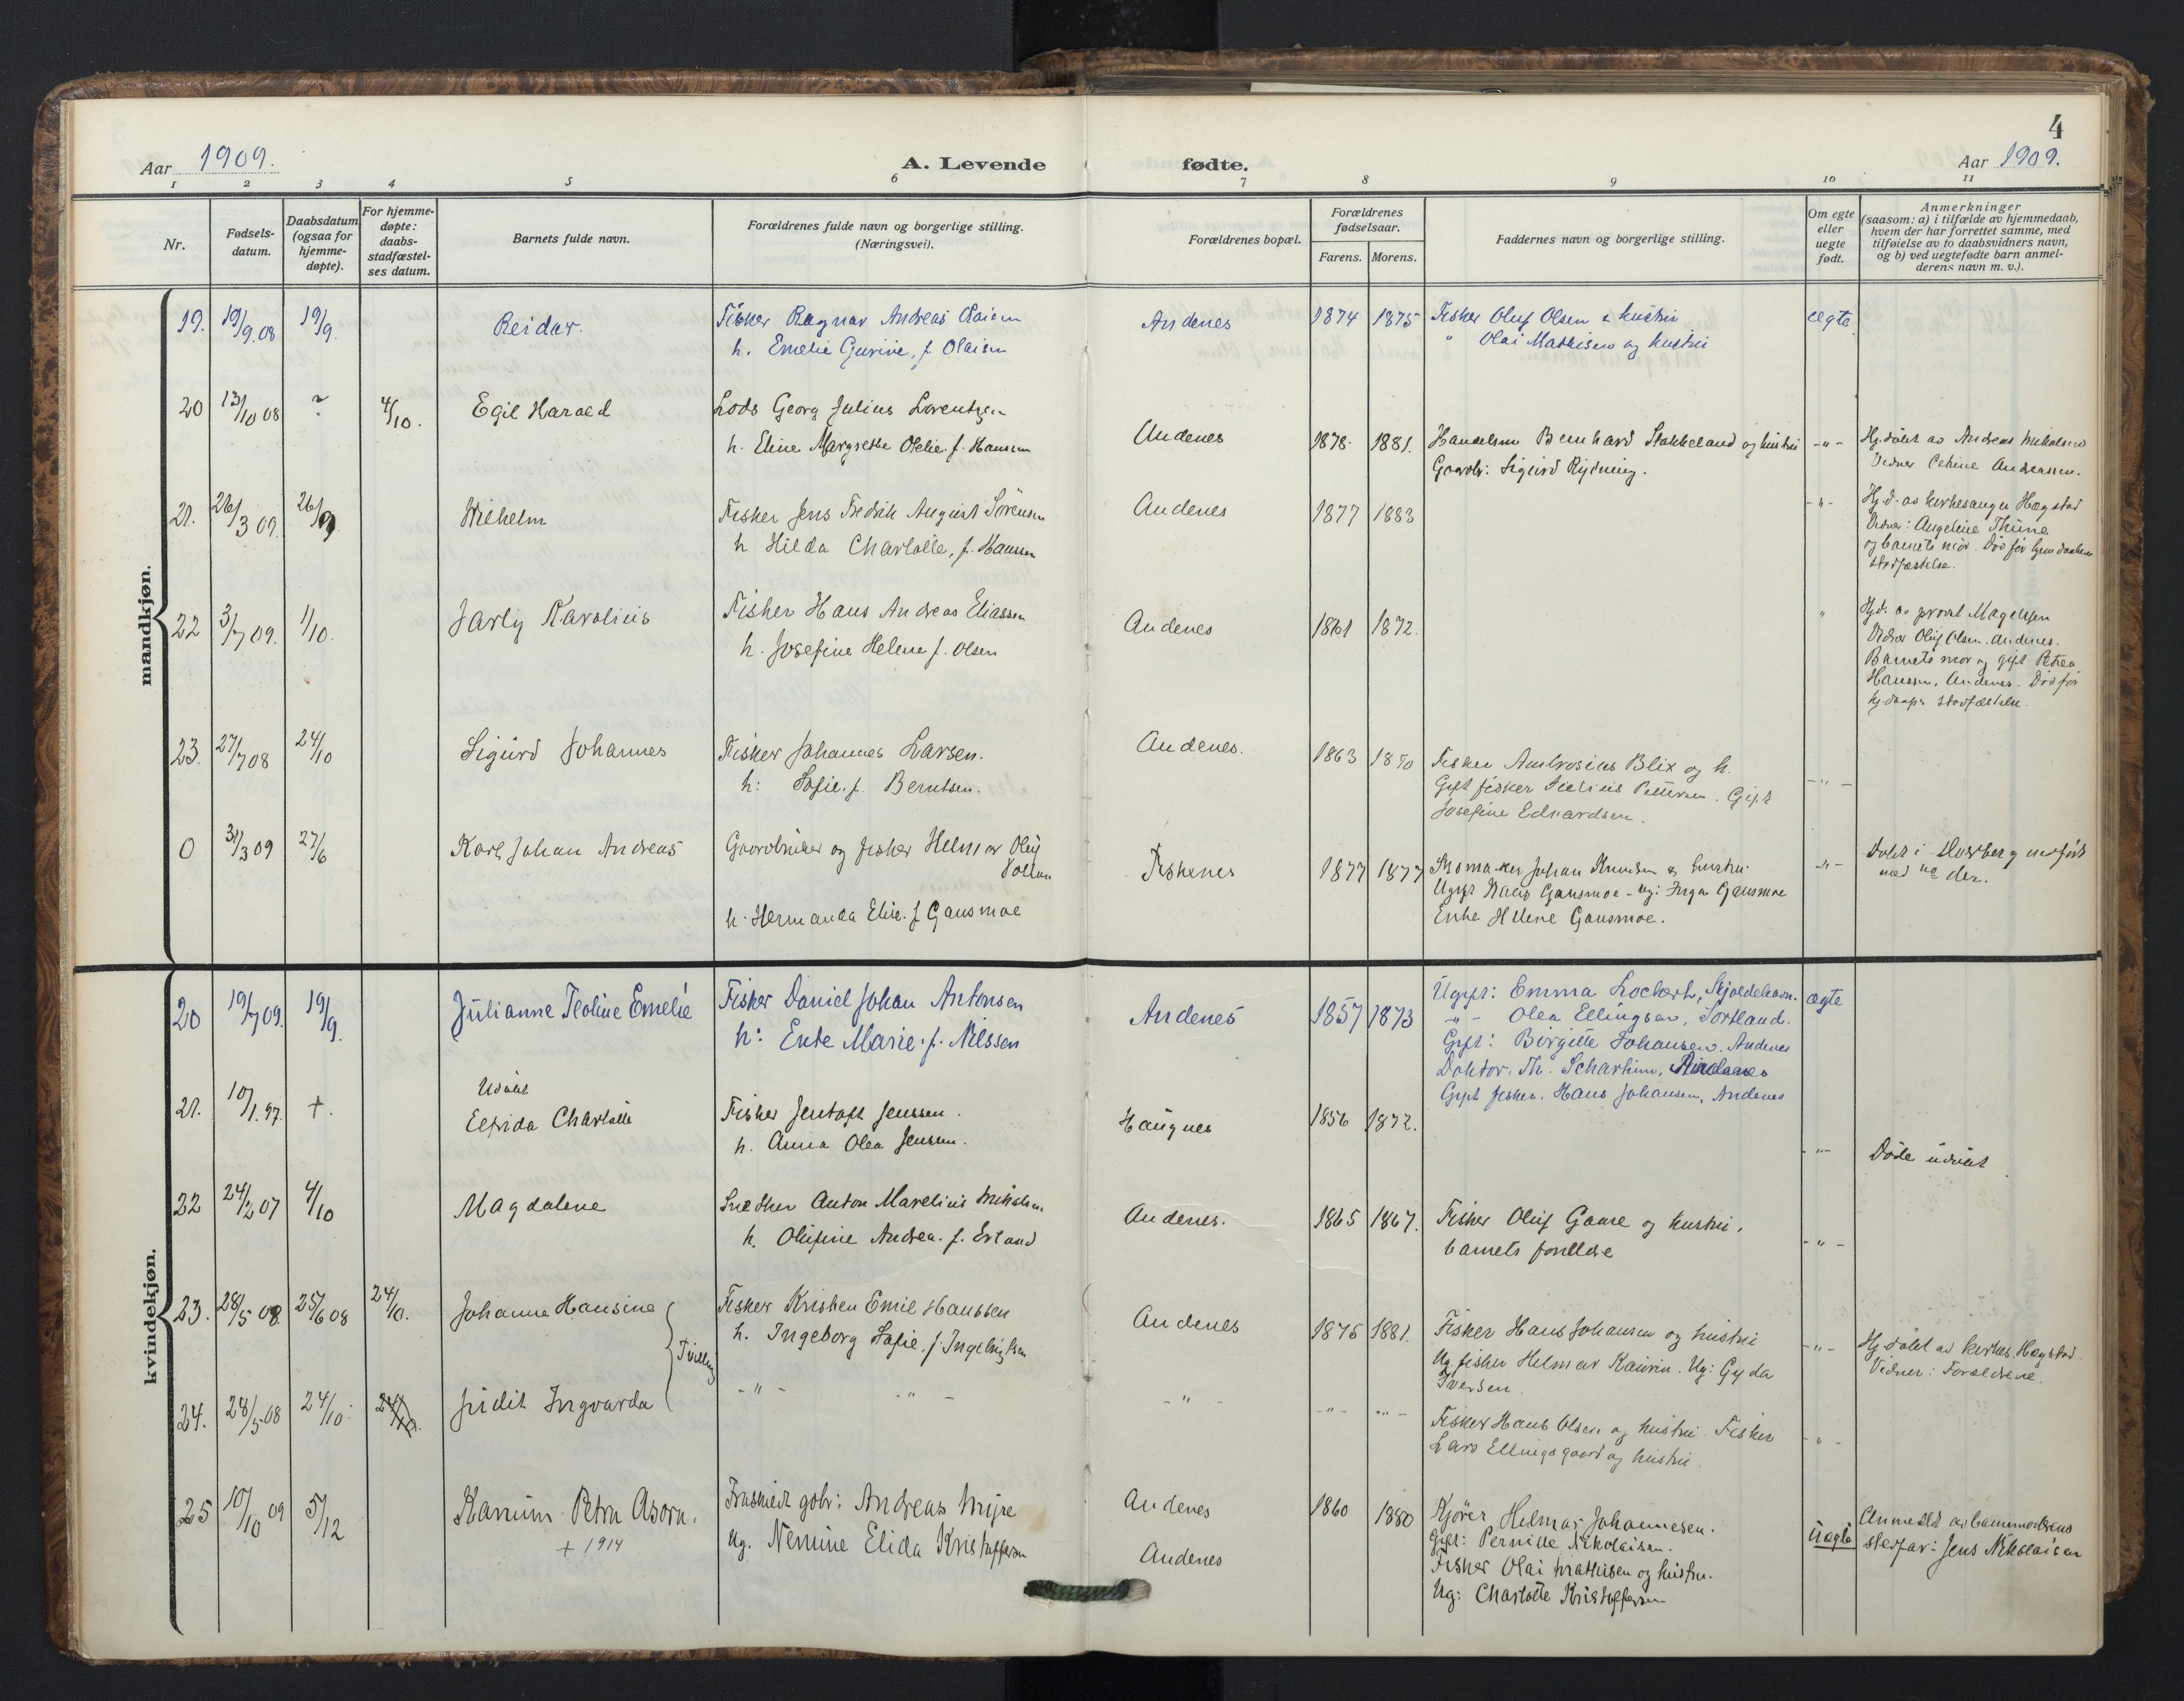 4
Aar 1909.
A. Levende fødte.
Aar 1909.
1 2 3 4 5 6 7 8 9 10 11
Nr.
Fødsels-
datum.
Daabsdatum
(ogsaa for
hjemme-
døpte).
For hjemme-
døpte:
daabs-
stadfæstel-
ses datum.
Barnets fulde navn.
Forældrenes fulde navn og borgerlige stilling.
(Næringsvei).
Forældrenes bopæl.
Forældrenes
fødselsaar.
Farens. Morens.
Faddernes navn og borgerlige stilling.
Om egte
eller
uegte
født.
Anmerkninger
(saasom: a) i tilfælde av hjemmedaab,
hvem der har forrettet samme, med
tilføielse av to daabsvidners navn,
og b) ved uegtefødte barn anmel-
derens navn m. v.).
mandkjøn.
19. 19/9.08 19/9. Reidar. Fisker Ragnar Andreas Olaisen Andenes 1874 1875 Fisker Oluf Olsen & hustru ægte
h. Emelie Gurine, f. Olaisen " Olai Mathisen og hustru
20 13/10 08 ? 4/10. Egil Harald Lods Georg Julius Lorentzen
h. Eline Margrethe Ofelie. f. Hanssen Andenes 1878. 1881. Bernhard Stakkeland og hustru -"- Hj.døbt av Andreas Mikalsen
Gaarbr: Sigurd Rydning. Vidner Andreassen.
21. 26/3 09. 26/9 Wilhelm Fisker Jens Fredrik August Sörensen Andenes 1877 1883 -"- Hj.d. av kirkesanger Hægstad
h Hilda Charlotte, f. Hanssen Vidner: Angeline Thune
og barnets mor. Død før hjemdaabens
stadfæstelse.
22 3/7 09. 1/10. Jarly Karolius Fisker Hans Andreas Eliassen Andenes 1861 1872. " Hj.d. av provst Magelssen
h. Josefine Helene f. Olsen Vidner Oluf Olsen. Andenes.
Barnets mor og gift Petrea
Hanssen, Andenes. Død før
hj.daaps stadfæstelse.
23. 27/7 08 24/10 Sigurd Johannes Fisker Johannes Larsen. Andenes. 1863 1870 Fisker Ambrosius Blix og h.
h: Sofie. f. Berntsen. Gift fisker Pettersen. Gift -"-
Josefine Edvardsen.
0 31/3 09 27/6 Karl Johan Andreas Gaardbruker og fisker Helmer Oluf Fiskenes 1877 1877 Skomaker Johan Knudsen & hustru -"- Døbt i og indført
med No der.
h. Hermanda Elise. f Gausmoe Ugift Gausmoe - Ug: Inga Gausmoe
Enke Helene Gausmoe.
kvindekjøn.
20 19/7 09. 19/9. Julianne Teoline Emelie Fisker Daniel Johan Antonsen Andenes 1857 1873 Ugift: Emma Lockert, Skjoldehavn. ægte
h: Enke Marie. f. Nilssen -"- Olea Ellingsen, Sortland.
Gift: Birgitte Johansen. Andenes
Doktor. Th. Scharlum, Andenes
Gift fisker. Hans Johansen, Andenes
21. 10/1.97. +. Udøbt
Elfrida Charlotte Fisker Jentoft Jenssen. Haugnes 1856 1872. -"- Døde udøbt
h. Anna Olea Jensen.
22 24/2 07 4/10 Magdalene Snedker Anton Marelius Mikalsen Andenes. 1865 1867. Fisker Oluf Gaare og hustru,
h. Olufine Andrea. f. barnets foreldre -"-
23. 28/5 08. 25/6 08 24/10. Johanne Hansine Fisker Kristen Emil Hanssen Andenes 1875 1881. Fisker Hans Johansen og hustru -"- Hj.døbt av kirkes. Hægstad.
h. Ingeborg Sofie. f. Ingebrigtsen Ug. fisker Helmer Kaurin. Ug: Gyda Vidner: Forældrene.
Iversen.
Tvilling
24. 28/5 08 24/10. 24/10. Judit Ingvarda -"- -"- -"- -"- -"- Fisker Hans Olsen og hustru. Fisker -"-
Lars Ellingsgaard og hustru.
25 10/10 09 5/12 Petra Andreas Myre Andenes 1860 1880 Kjører Helmar Johannesen.
+ 1914 Ug. Nemine Elida Kristoffersen Andenes Gift: Pernille Nikolaisen. uægte Anmeldt av barnemoderens
Fisker Olai Mathisen og hustru. stedfar: Jens Nikolaisen
Ug: Charlotte Kristoffersen